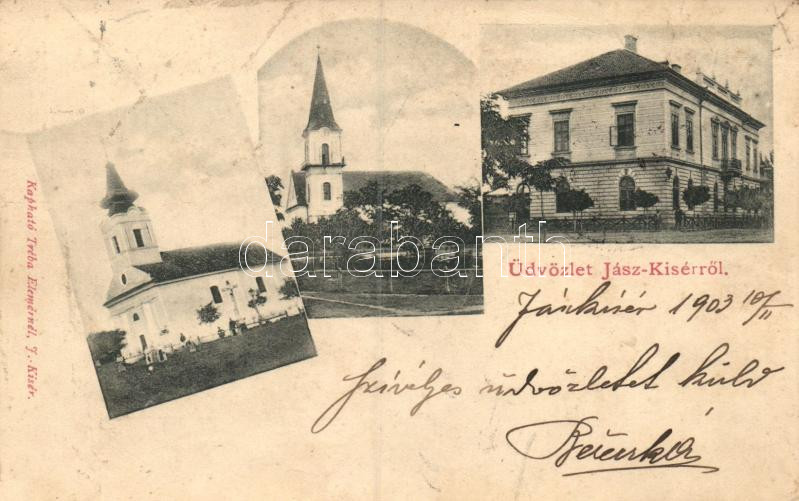 Kapható Tréba Elemérnél, J.-Kisér.
darabanth
Üdvözlet Jász-Kisérről.
Jászkisér 1903 10/II
Szívélyes üdvözletet küld